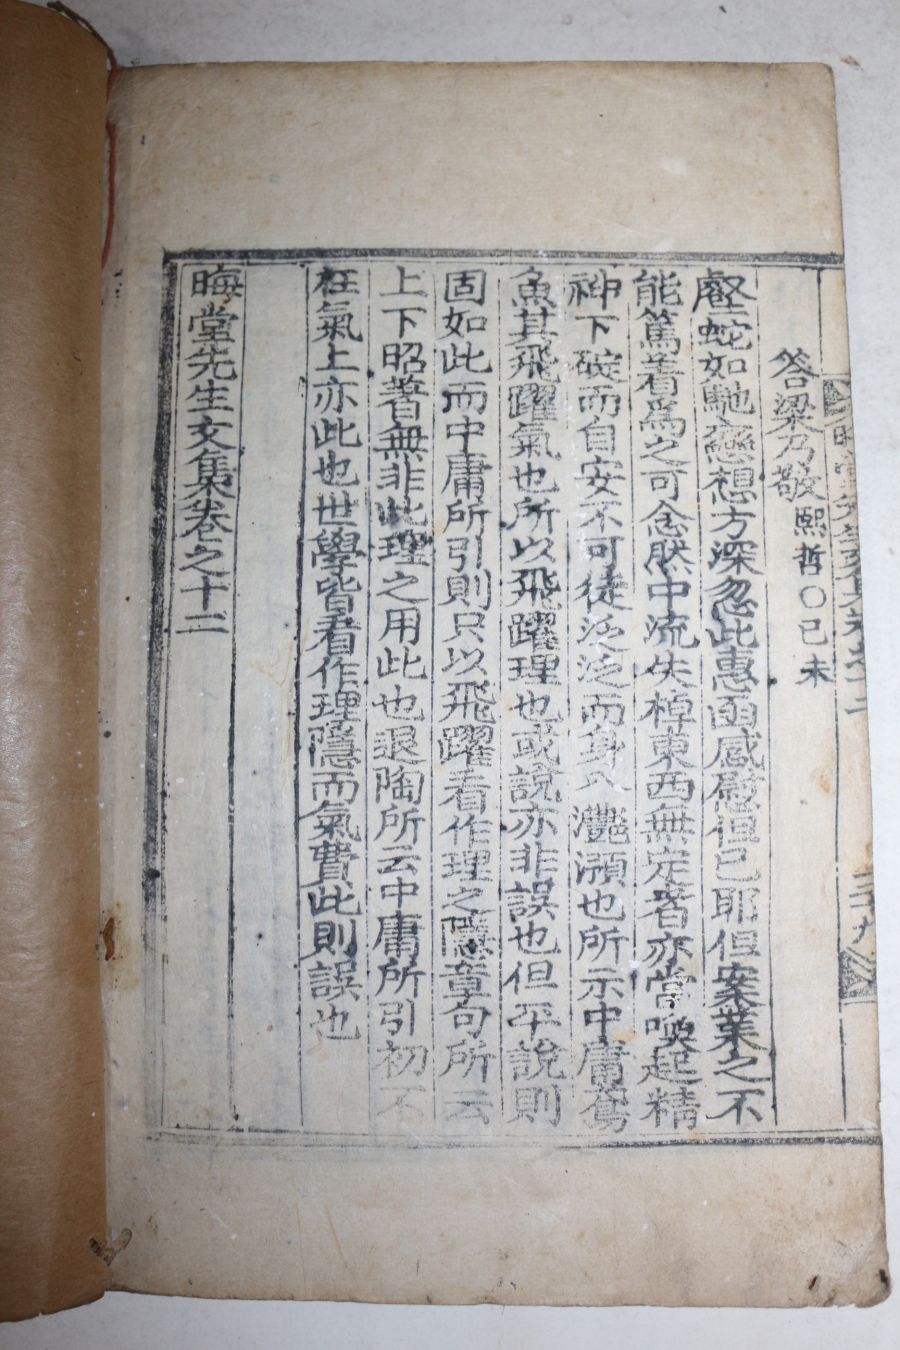 答梁乃敬熙哲○己未
壑蛇如馳戀想方深忽此惠函感慰但已耶但案業之不
能篤着爲之可念然中流失棹東西無定者亦當喚起精
神下碇而自安不可徒泛泛而身入灩澦也所示中庸鳶
魚其飛躍氣也所以飛躍理也或說亦非誤也但平說則
固如此而中庸所引則只以飛躍看作理之隱章句所云
上下昭著無非此理之用此也退陶所云中庸所引初不
在氣上亦此也世學皆看作理隱而氣費此則誤也
晦堂先生文集卷之十二